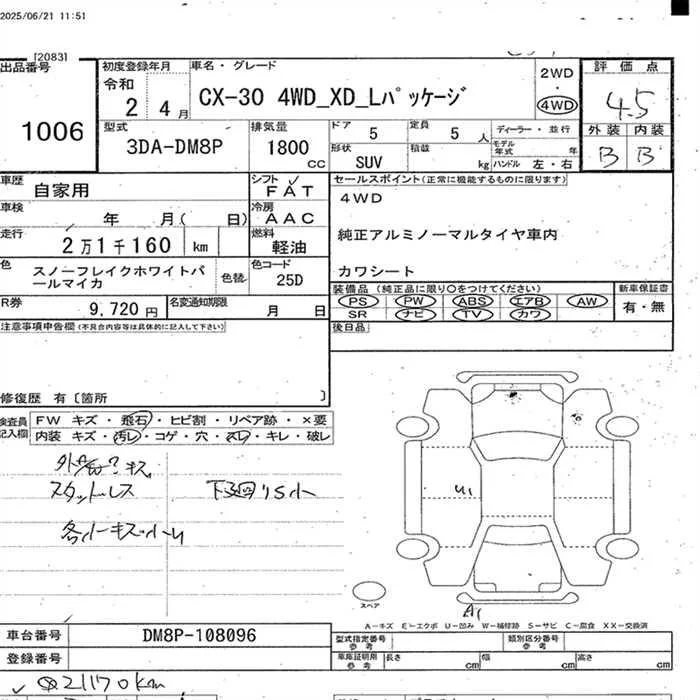 2025/06/21 11:51
[2083]
出品番号
1006
初度登録年月
令和
2 4月
車名・グレード
CX-30 4WD_XD_Lパッケージ
2WD
・
4WD
評価点
4.5
外装 内装
B B
型式
3DA-DM8P
排気量
1800 CC
ドア 5
定員 5 人
形状 SUV
積載 kg
ディーラー・並行
モデル年式 年
ハンドル 左・右
車歴 自家用
シフト F A T
セールスポイント(正常に機能するものに限ります)
4WD
純正アルミノーマルタイヤ車内
カワシート
車検 年 月( 日)
冷房 A A C
走行 2万1千160 km
燃料 軽油
色 スノーフレイクホワイトパールマイカ
色替
色コード 25D
装備品(純正品に限り○をつけてください)
PS PW ABS エアB AW
SR ナビ TV カワ
新車保証書
有・無
R券 9,720円
名変通知期限 月 日
後日品
注意事項申告欄(不具合内容等は具体的に記入して下さい)
修復歴 有〔箇所 〕
検査員記入欄
FW キズ・飛石・ヒビ割・リペア跡・×要
内装 キズ・汚レ・コゲ・穴・スレ・キレ・破レ
スタットレス
下廻リS小
各小キズ小U
U1
A1
スペア
A―キズ E―エクボ U―凹み W―補修跡 S―サビ C―腐食 XX―交換済
車台番号 DM8P-108096
型式指定番号 参考
類別区分番号 参考
登録番号
車庫証明用 参考
長さ cm
幅 cm
高さ cm
21170km